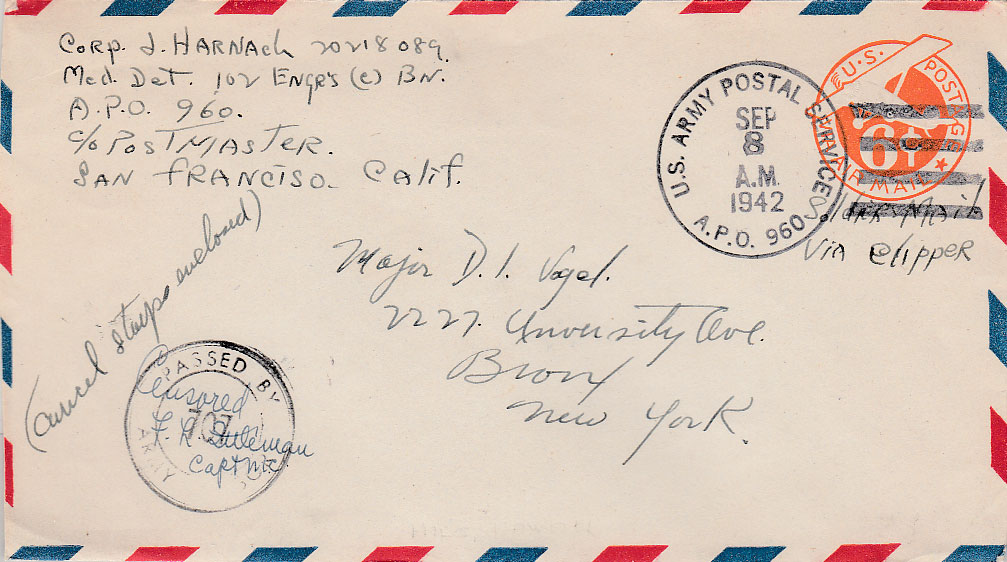 Corp. J. HARNACH 20218089
Med. Det. 102 Engrs (C) BN.
A.P.O. 960.
c/o POSTMASTER.
SAN FRANCISO. CALIF.
U.S. ARMY POSTAL SERVICE
SEP
8
A.M.
1942
A.P.O. 960
U.S. POSTAGE
6¢
AIR MAIL
Via Clipper
Major D. I. Vogel.
2227. University Ave.
Bronx
New York.
(Cancel stamps enclosed)
PASSED BY
Censored
707
Capt MC
ARMY